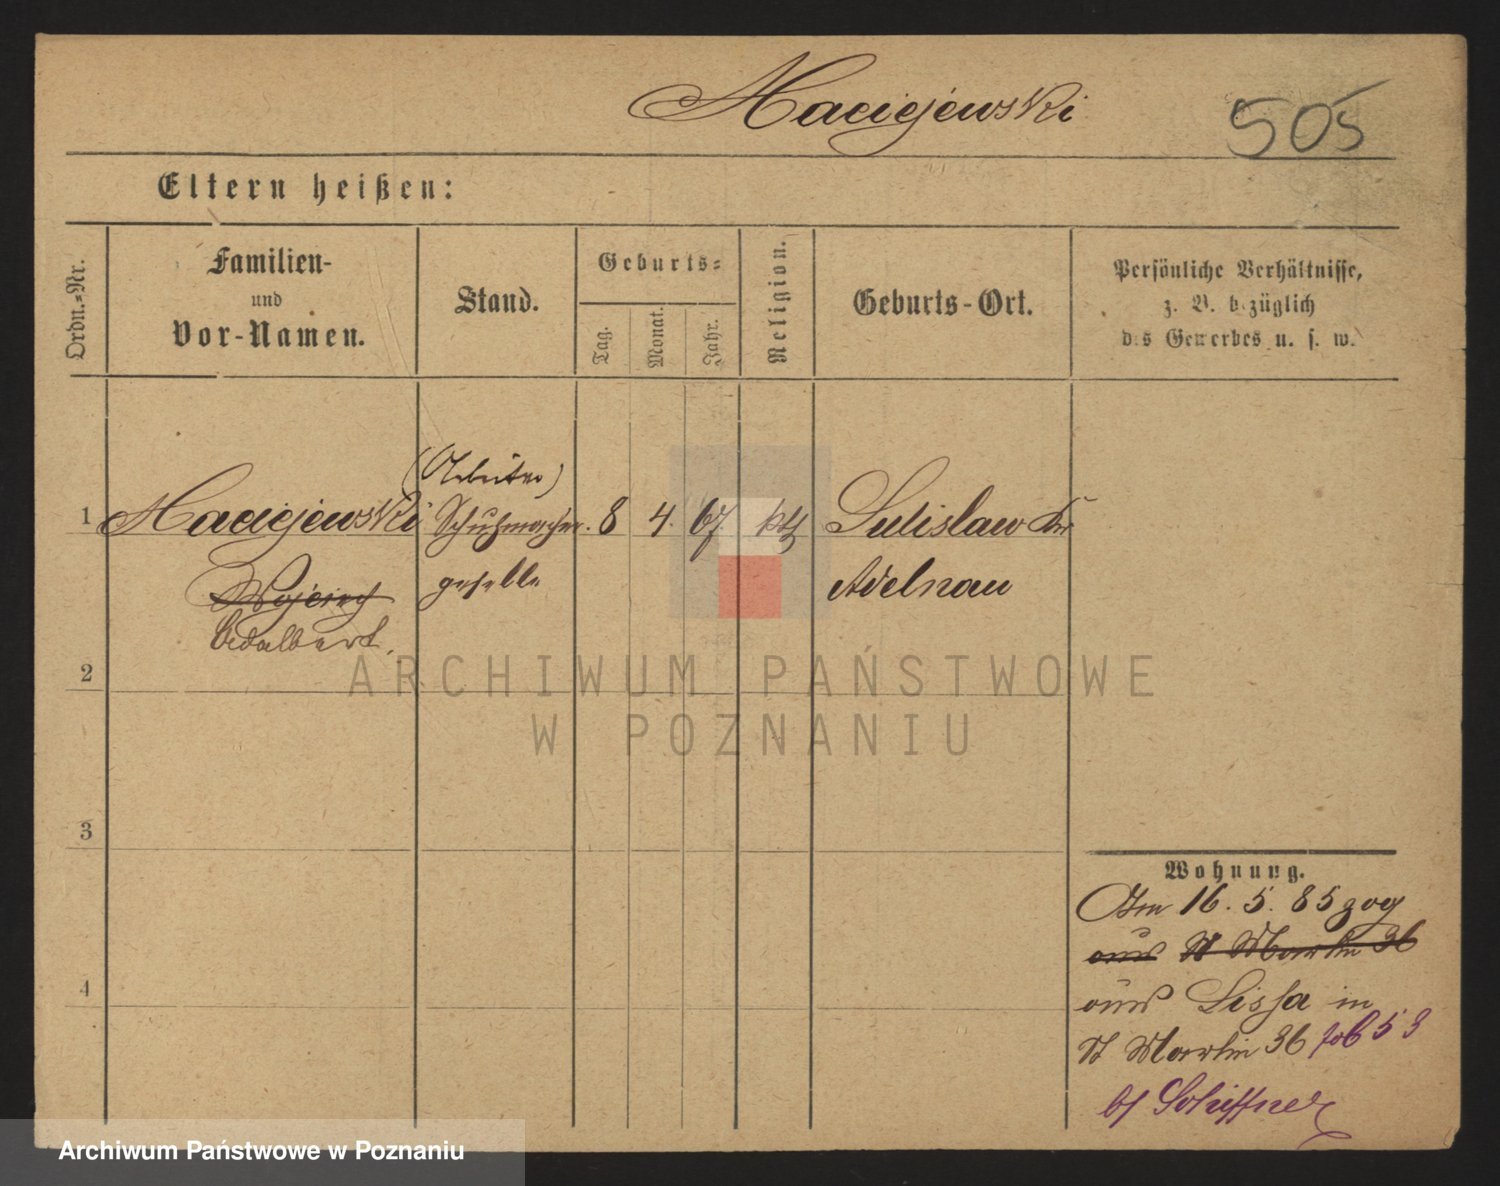 Maciejewski
505
Eltern heißen:
Ordn.=Nr.
Familien-
und
Vor-Namen.
Stand.
Geburts=
Tag.
Monat.
Jahr.
Religion.
Geburts-Ort.
Persönliche Verhältnisse,
z. B. bezüglich
des Gewerbes u. s. w.
(Arbeiter)
1 Maciejewski Schuhmacher. 8 4. 67. kth Sulislaw Kr
Wojciech geselle Adelnau
Adalbert.
2
ARCHIWUM PAŃSTWOWE
W POZNANIU
3
Wohnung.
Am 16. 5. 85 zog
aus St Martin 36
4
aus Lissa in
St Martin 36 53
b/ Schiffner
Archiwum Państwowe w Poznaniu